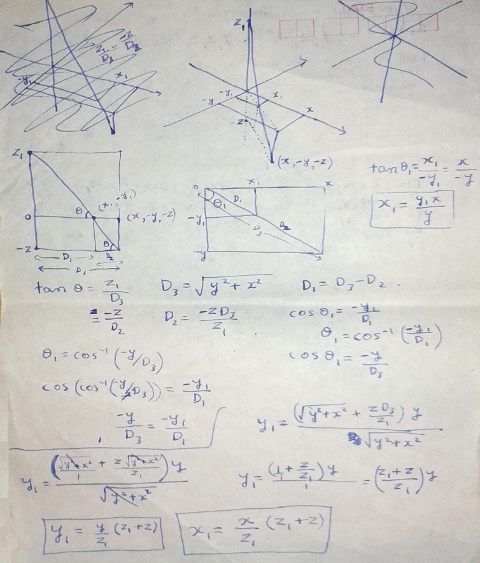 z₁/D₃ = z/D₂
-y₁ x₁
z₁
-y -y₁ x₁ x
z
(x, -y, -z)
z₁
0 θ (x₁, -y₁) (x, -y, -z)
-z θ
D₁ D₂
D₃
0 x₁ x
θ₁ D₁
-y₁ D₃ D₂
-y
tan θ₁ = x₁/-y₁ = x/-y
x₁ = y₁x/y
tan θ = z₁/D₃ D₃ = √(y² + x²) D₁ = D₃ - D₂ .
= -z/D₂ D₂ = -zD₃/z₁ cos θ₁ = -y₁/D₁
θ₁ = cos⁻¹ (-y₁/D₁)
θ₁ = cos⁻¹ (-y/D₃) cos θ₁ = -y/D₃
cos (cos⁻¹ (-y/D₃)) = -y₁/D₁
-y/D₃ = -y₁/D₁
y₁ = (√(y²+x²) + zD₃/z₁) y / √(y²+x²)
y₁ = (√(y²+x²)/1 + z√(y²+x²)/z₁) y / √(y²+x²) y₁ = (1/1 + z/z₁) y / 1 = ((z₁+z)/z₁) y
y₁ = y/z₁ (z₁+z) x₁ = x/z₁ (z₁+z)